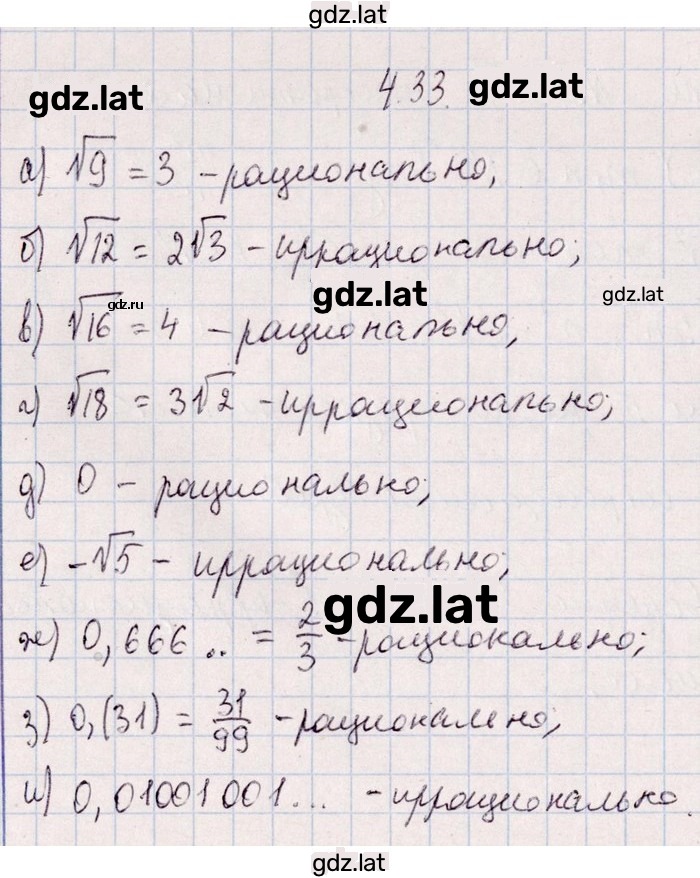 gdz.lat
gdz.lat 4.33. gdz.lat
а) √9 = 3 – рационально;
б) √12 = 2√3 – иррационально;
gdz.ru gdz.lat gdz.lat
в) √16 = 4 – рационально;
г) √18 = 3√2 – иррационально;
д) 0 – рационально;
е) -√5 – иррационально;
gdz.lat
ж) 0,666.. = 2/3 – рационально;
з) 0,(31) = 31/99 – рационально;
и) 0,01001001... – иррационально.
gdz.lat